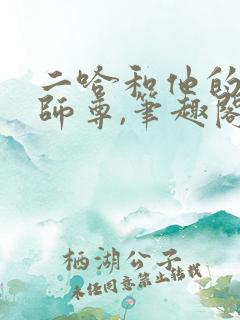 二哈和他的
師尊,笔趣阁
栖湖公子
未任同意禁止转载